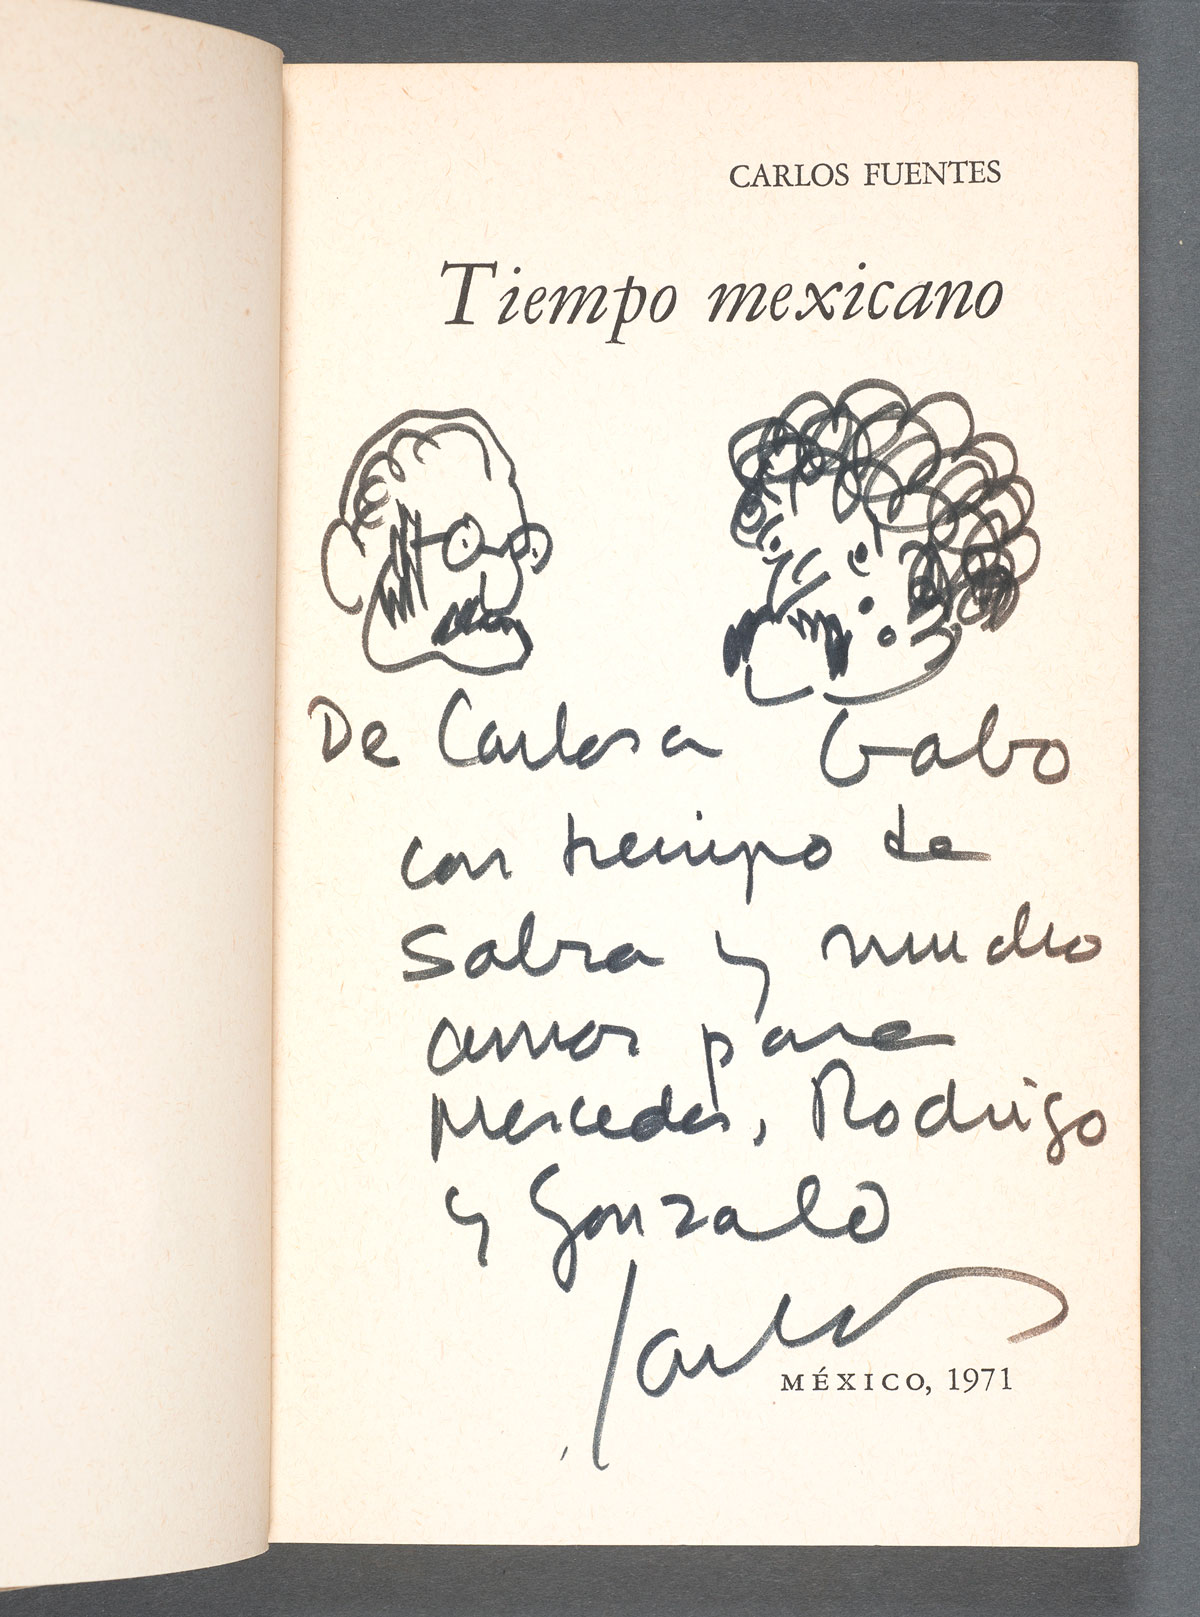 CARLOS FUENTES
Tiempo mexicano
De Carlos a Gabo
con tiempo de
sobra y mucho
amor para
Mercedes, Rodrigo
y Gonzalo
Carlos
MÉXICO, 1971